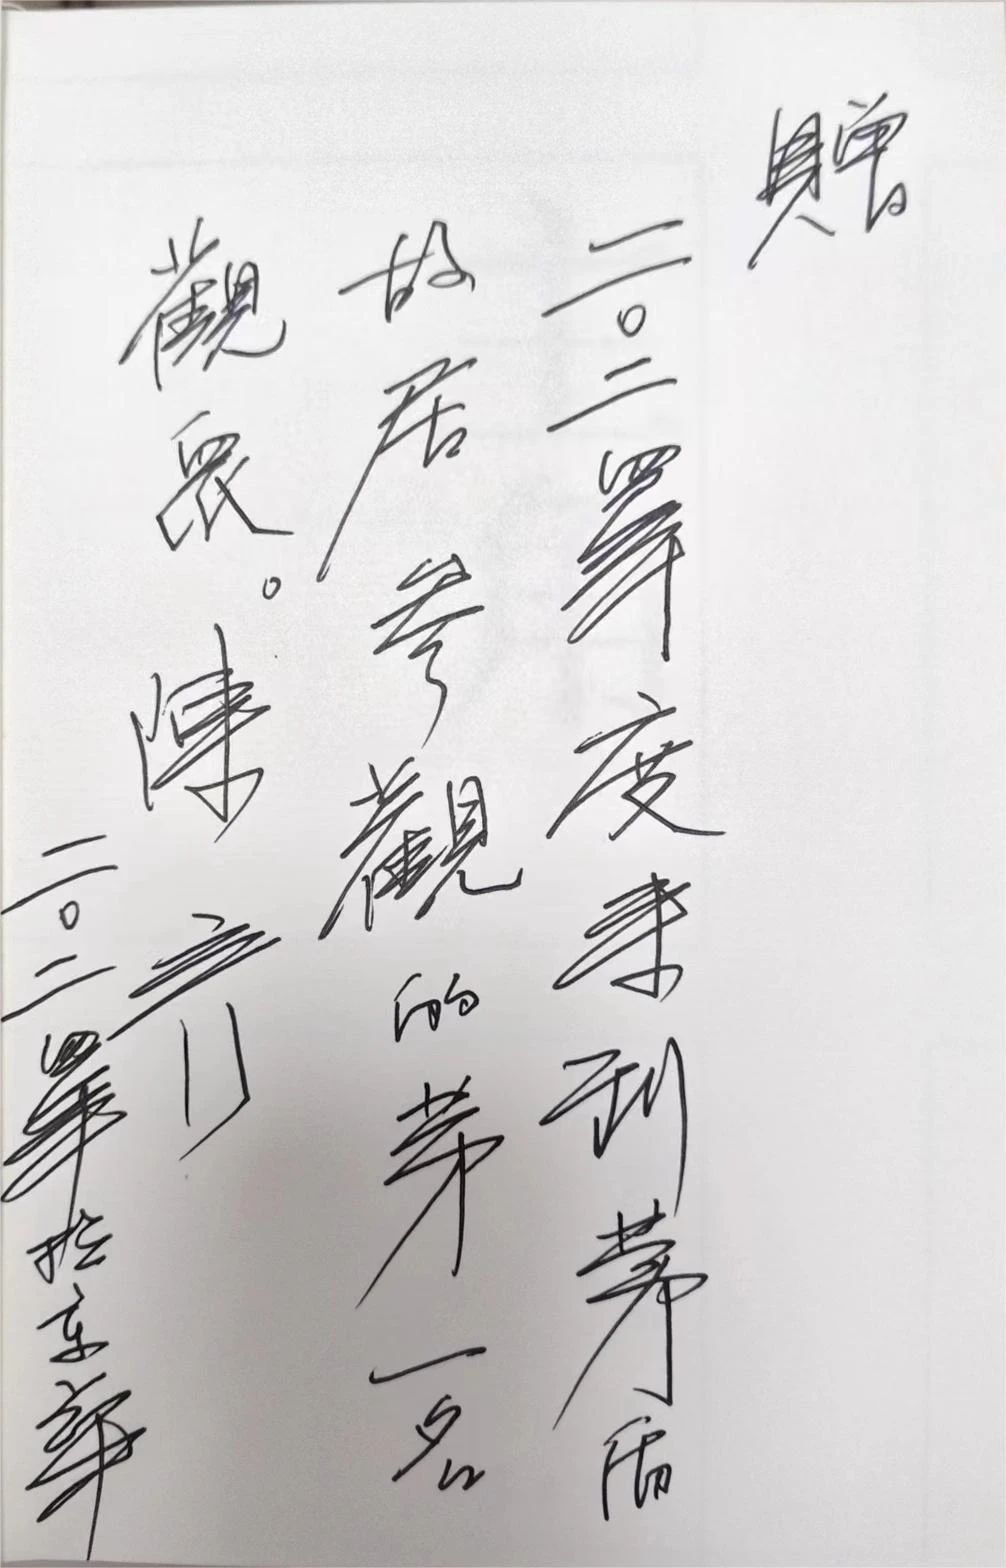 贈
二〇二四年度来到茅盾
故居参觀的第一名
觀眾。陳彦
二〇二四年於京華